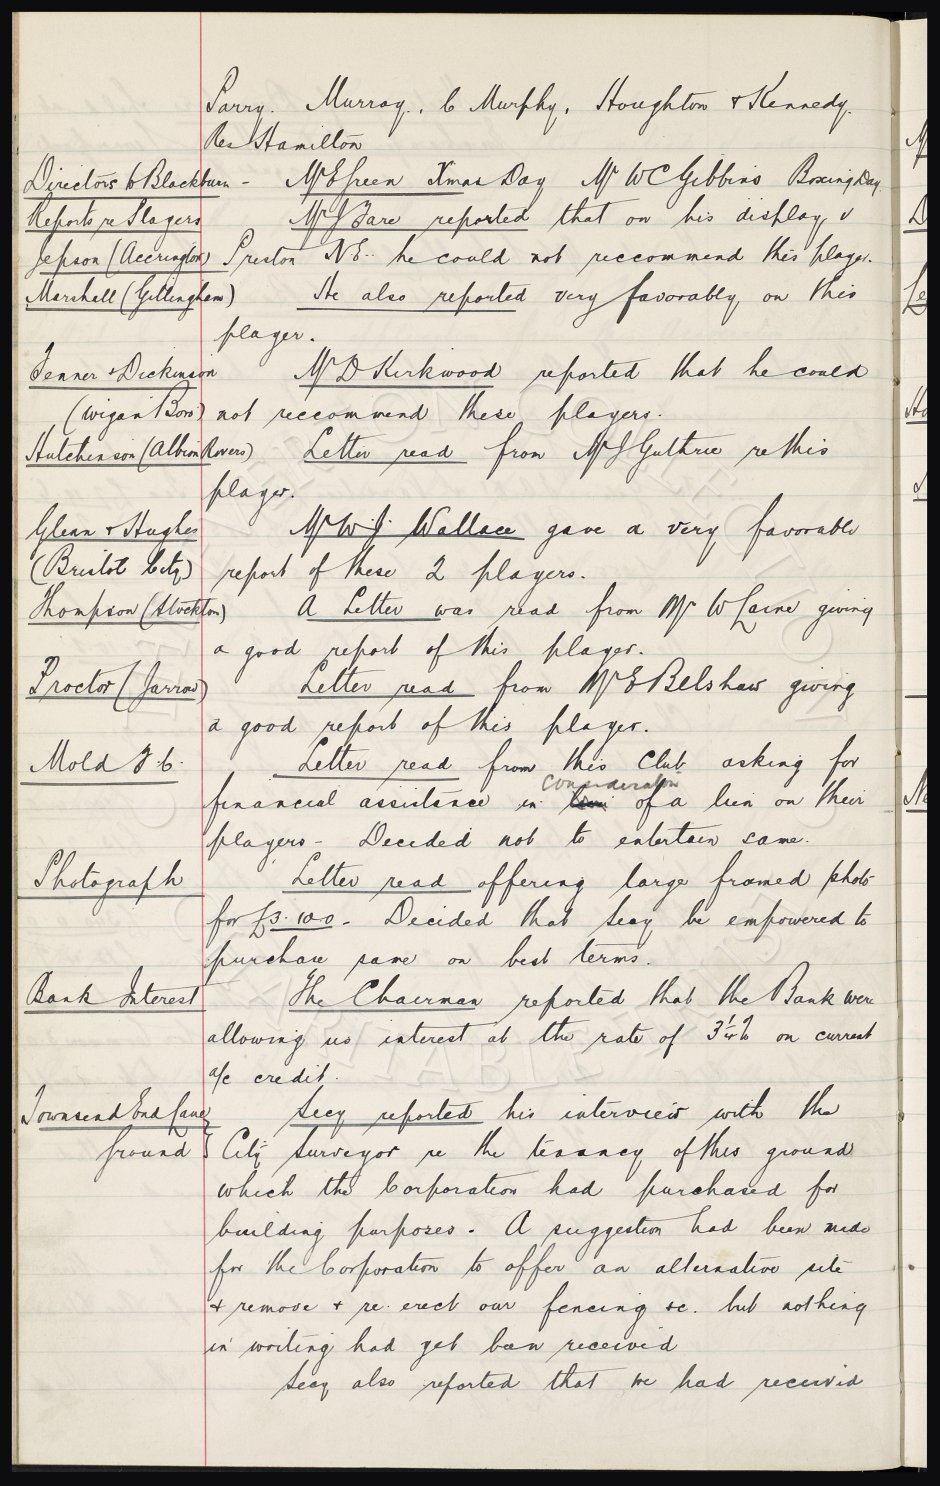 Parry. Murray. C Murphy, Houghton & Kennedy.
Res Hamilton
Directors to Blackburn - Mr E Green Xmas Day Mr W C Gibbins Boxing Day.
Reports re Players Mr J Fare reported that on his display v
Jepson (Accrington) Preston N E.. he could not reccommend this player.
Marshall (Gillingham) He also reported very favorably on this
player.
Fenner & Dickinson Mr D Kirkwood reported that he could
(Wigan Boro) not reccommend these players.
Hutchinson (Albion Rovers) Letter read from Mr J Guthrie re this
player.
Glenn & Hughes Mr W. J. Wallace gave a very favorable
(Bristol City) report of these 2 players.
Thompson (Stockton) A Letter was read from Mr W Laine giving
a good report of this player.
Proctor (Jarrow) Letter read from Mr E Belshaw giving
a good report of this player.
Mold F.C. Letter read from this Club asking for
consideration
financial assistance in of a lien on their
players - Decided not to entertain same.
Photograph Letter read offering large framed photo
for £3.10.0 - Decided that Secy be empowered to
purchase same on best terms.
Bank Interest The Chairman reported that the Bank were
allowing us interest at the rate of 3¼% on current
a/c credit.
Townsend End Lane Secy reported his interview with the
Ground } City Surveyor re the tenancy of this ground
which the Corporation had purchased for
building purposes. A suggestion had been made
for the Corporation to offer an alternative site
& remove & re-erect our fencing &c. but nothing
in writing had yet been received
Secy also reported that we had received